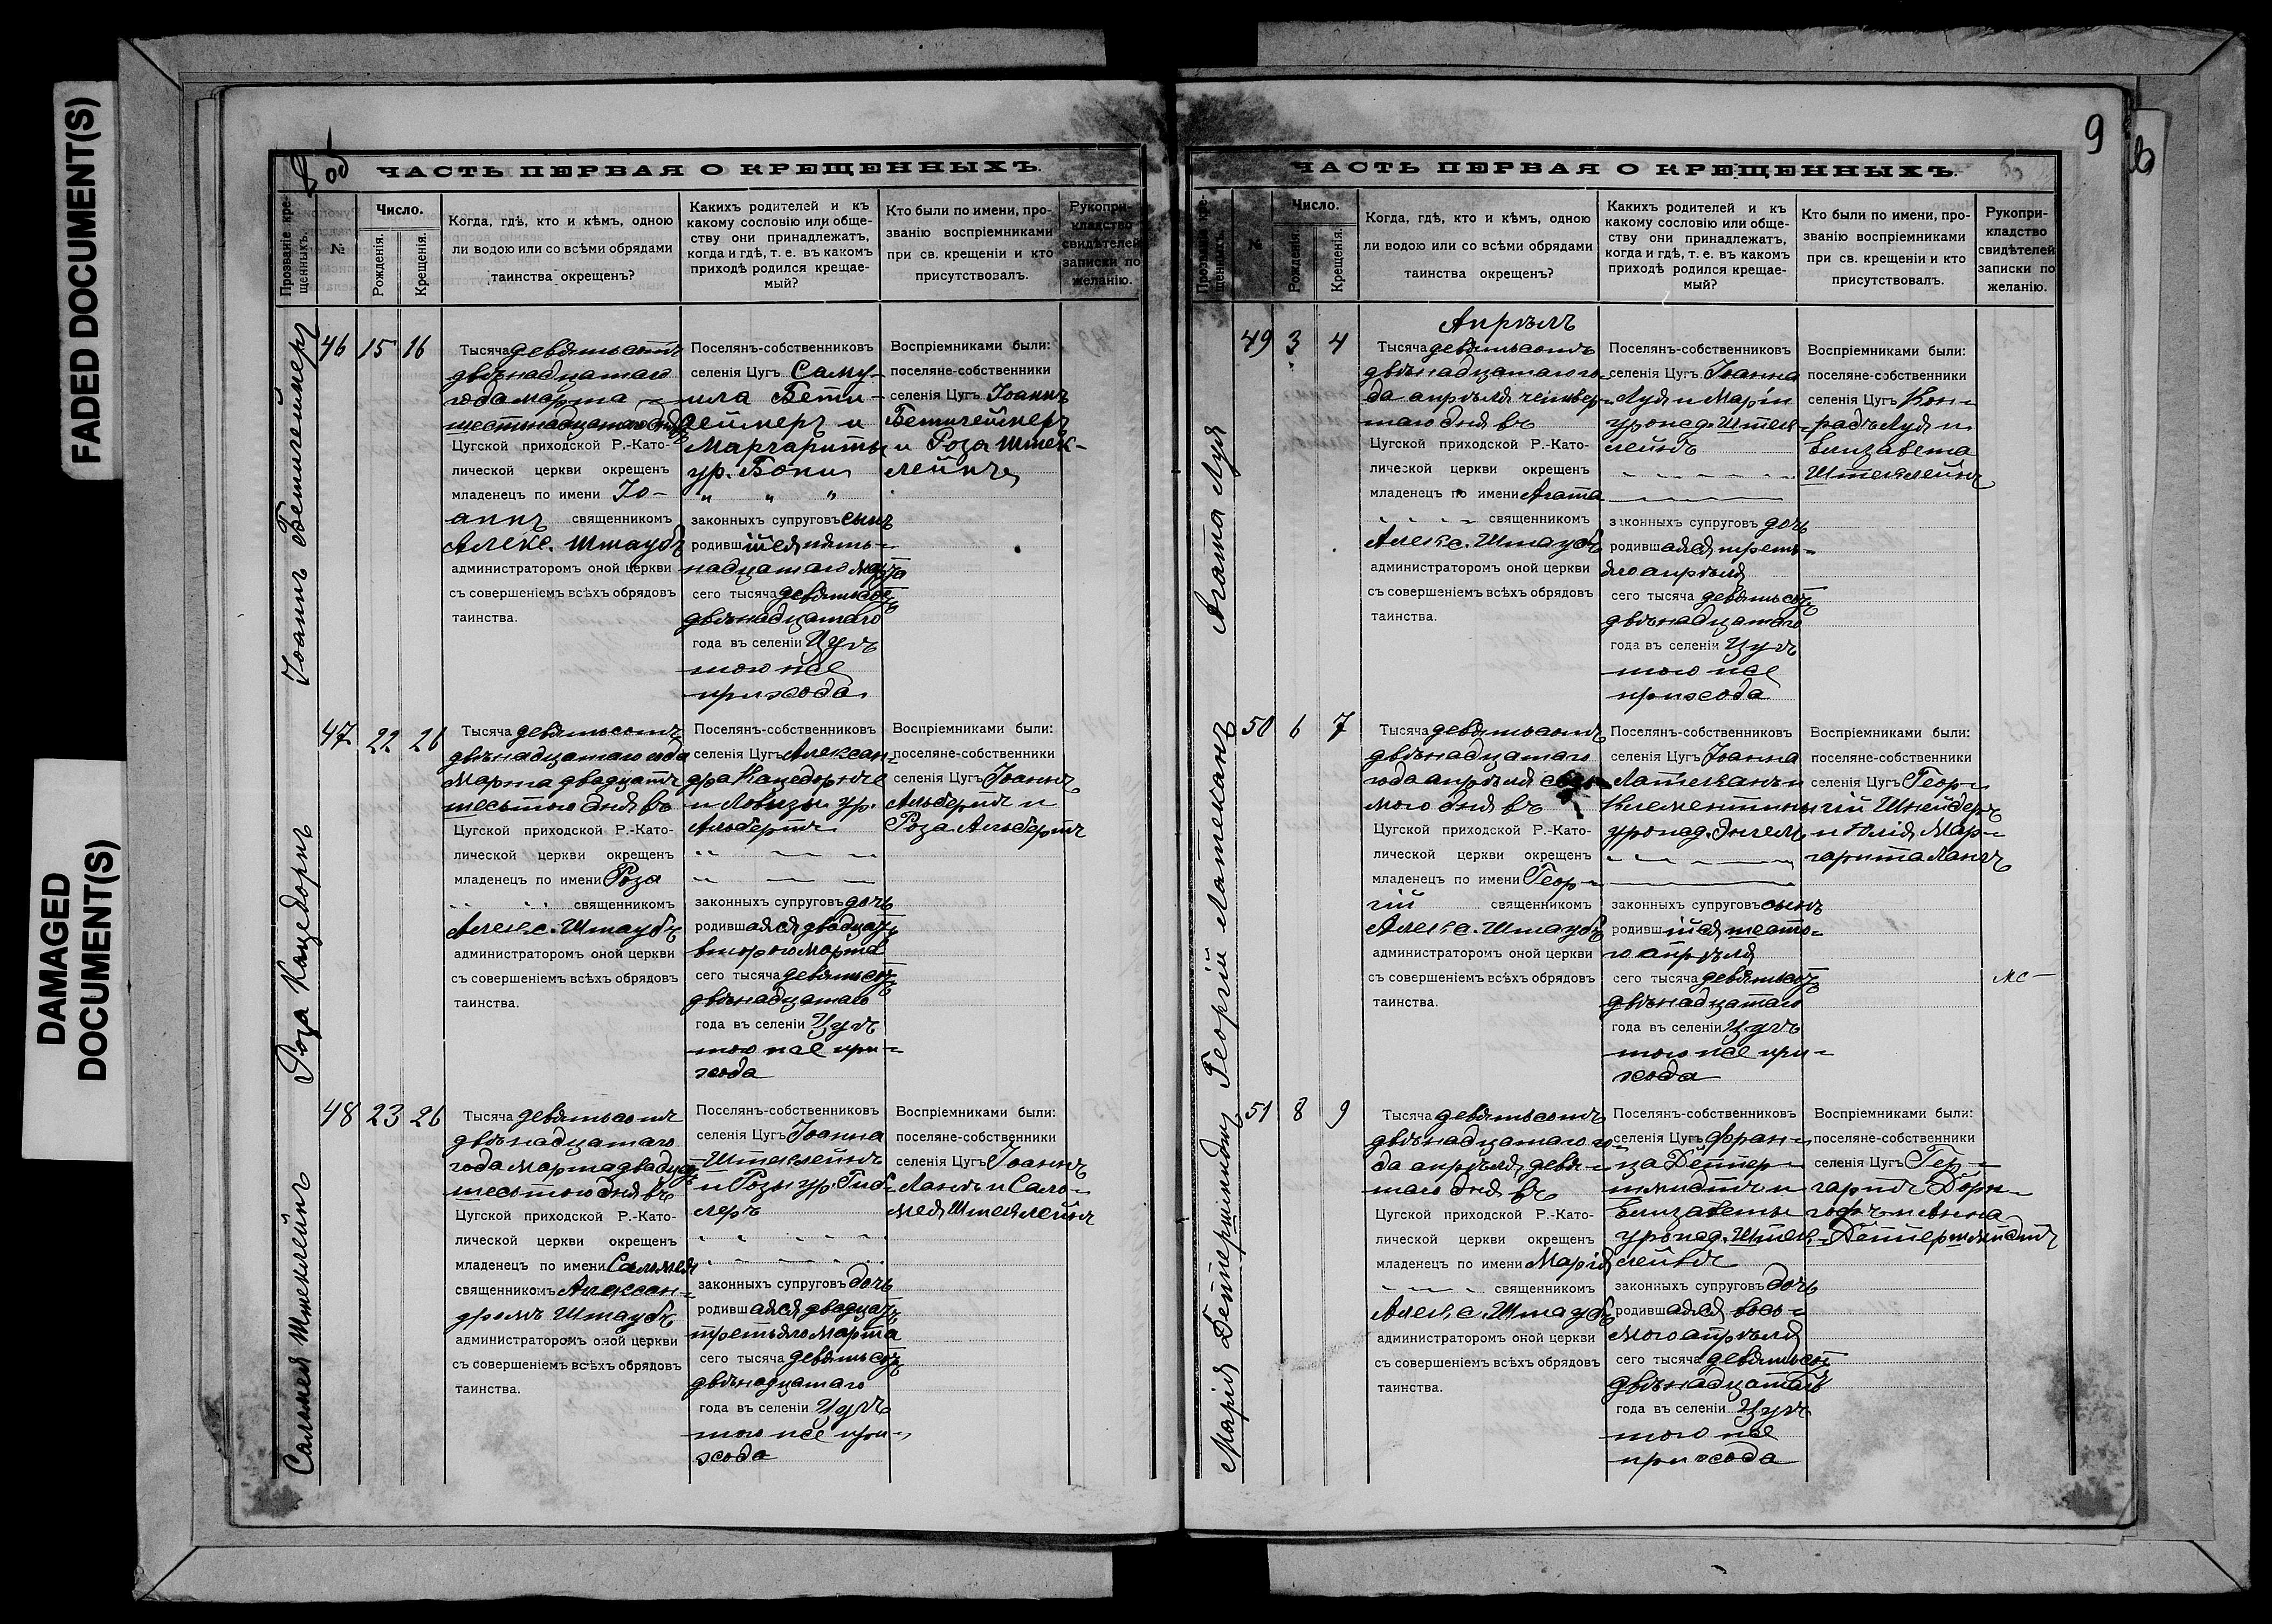 FADED DOCUMENT(S)
DAMAGED
DOCUMENT(S)
об
ЧАСТЬ ПЕРВАЯ О КРЕЩЕННЫХЪ.
Прозваніе кре-
щенныхъ.
№
Число.
Рожденія.
Крещенія.
Когда, гдѣ, кто и кѣмъ, одною
ли водою или со всѣми обрядами
таинства окрещенъ?
Какихъ родителей и къ
какому сословію или обще-
ству они принадлежатъ,
когда и гдѣ, т. е. въ какомъ
приходѣ родился крещае-
мый?
Кто были по имени, про-
званію воспріемниками
при св. крещеніи и кто
присутствовалъ.
Рукопри-
кладство
свидѣтелей
записки по
желанію.
Іоаннъ Бетчгеймеръ
46 15 16
Тысяча девятьсотъ
двѣнадцатаго
года марта
шестнадцатаго дня
Цугской приходской Р.-Като-
лической церкви окрещенъ
младенецъ по имени Іо-
аннъ священникомъ
Алекс. Штаубъ
администраторомъ оной церкви
съ совершеніемъ всѣхъ обрядовъ
таинства.
Поселянъ-собственниковъ
селенія Цугъ Саму-
ила Бетч-
геймеръ и
Маргариты
ур. Бокъ
" " "
законныхъ супруговъ сынъ
родившійся пят-
надцатаго марта
сего тысяча девятьсотъ
двѣнадцатаго
года въ селеніи Цугъ
того же
прихода.
Воспріемниками были:
поселяне-собственники
селенія Цугъ Іоаннъ
Бетчгеймеръ
и Роза Штек-
лейнъ
Роза Кацедорнъ
47 22 26
Тысяча девятьсотъ
двѣнадцатаго года
марта двадцать
шестого дня въ
Цугской приходской Р.-Като-
лической церкви окрещенъ
младенецъ по имени Роза
священникомъ
Алекс. Штаубъ
администраторомъ оной церкви
съ совершеніемъ всѣхъ обрядовъ
таинства.
Поселянъ-собственниковъ
селенія Цугъ Алексан-
дра Кацедорнъ
и Ловизы ур.
Альбертъ
законныхъ супруговъ дочь
родившаяся двадцать
второго марта
сего тысяча девятьсотъ
двѣнадцатаго
года въ селеніи Цугъ
того же при-
хода
Воспріемниками были:
поселяне-собственники
селенія Цугъ Іоаннъ
Альбертъ и
Роза Альбертъ
Саломея Штеклейнъ
48 23 26
Тысяча девятьсотъ
двѣнадцатаго
года марта двадцать
шестого дня въ
Цугской приходской Р.-Като-
лической церкви окрещенъ
младенецъ по имени Саломея
священникомъ Алексан-
дромъ Штаубъ
администраторомъ оной церкви
съ совершеніемъ всѣхъ обрядовъ
таинства.
Поселянъ-собственниковъ
селенія Цугъ Іоанна
Штеклейнъ
и Розы ур. Гис-
леръ
законныхъ супруговъ дочь
родившаяся двадцать
третьяго марта
сего тысяча девятьсотъ
двѣнадцатаго
года въ селеніи Цугъ
того же при-
хода
Воспріемниками были:
поселяне-собственники
селенія Цугъ Іоаннъ
Лангъ и Сало-
мея Штеклейнъ
9
ЧАСТЬ ПЕРВАЯ О КРЕЩЕННЫХЪ.
Прозваніе кре-
щенныхъ.
№
Число.
Рожденія.
Крещенія.
Когда, гдѣ, кто и кѣмъ, одною
ли водою или со всѣми обрядами
таинства окрещенъ?
Какихъ родителей и къ
какому сословію или обще-
ству они принадлежатъ,
когда и гдѣ, т. е. въ какомъ
приходѣ родился крещае-
мый?
Кто были по имени, про-
званію воспріемниками
при св. крещеніи и кто
присутствовалъ.
Рукопри-
кладство
свидѣтелей
записки по
желанію.
Апрѣль
Агата Луя
49 3 4
Тысяча девятьсотъ
двѣнадцатаго го-
да апрѣля четвер-
таго дня въ
Цугской приходской Р.-Като-
лической церкви окрещенъ
младенецъ по имени Агата
священникомъ
Алекс. Штаубъ
администраторомъ оной церкви
съ совершеніемъ всѣхъ обрядовъ
таинства.
Поселянъ-собственниковъ
селенія Цугъ Іоанна
Луя и Маріи
урожд. Штек-
лейнъ
законныхъ супруговъ дочь
родившаяся треть-
яго апрѣля
сего тысяча девятьсотъ
двѣнадцатаго
года въ селеніи Цугъ
того же
прихода
Воспріемниками были:
поселяне-собственники
селенія Цугъ Кон-
радъ Луя и
Елизавета
Штеклейнъ
Георгій Латеканъ
50 6 7
Тысяча девятьсотъ
двѣнадцатаго
года апрѣля седь
мого дня въ
Цугской приходской Р.-Като-
лической церкви окрещенъ
младенецъ по имени Геор-
гій священникомъ
Алекс. Штаубъ
администраторомъ оной церкви
съ совершеніемъ всѣхъ обрядовъ
таинства.
Поселянъ-собственниковъ
селенія Цугъ Іоанна
Латеканъ и
Клементины
урожд. Энгель
законныхъ супруговъ сынъ
родившійся шесто-
го апрѣля
сего тысяча девятьсотъ
двѣнадцатаго
года въ селеніи Цугъ
того же при-
хода
Воспріемниками были:
поселяне-собственники
селенія Цугъ Геор-
гій Шнейдеръ
и Юлія Мар-
гарита Лангъ
Марія Деттершмидтъ
51 8 9
Тысяча девятьсотъ
двѣнадцатаго го-
да апрѣля девя-
таго дня въ
Цугской приходской Р.-Като-
лической церкви окрещенъ
младенецъ по имени Марія
священникомъ
Алекс. Штаубъ
администраторомъ оной церкви
съ совершеніемъ всѣхъ обрядовъ
таинства.
Поселянъ-собственниковъ
селенія Цугъ Фран-
ца Деттер-
шмидтъ и
Елизаветы
урожд. Штек-
лейнъ
законныхъ супруговъ дочь
родившаяся вось-
мого апрѣля
сего тысяча девятьсотъ
двѣнадцатаго
года въ селеніи Цугъ
того же
прихода
Воспріемниками были:
поселяне-собственники
селенія Цугъ
Дорн-
гофъ и Анна
Деттершмидтъ